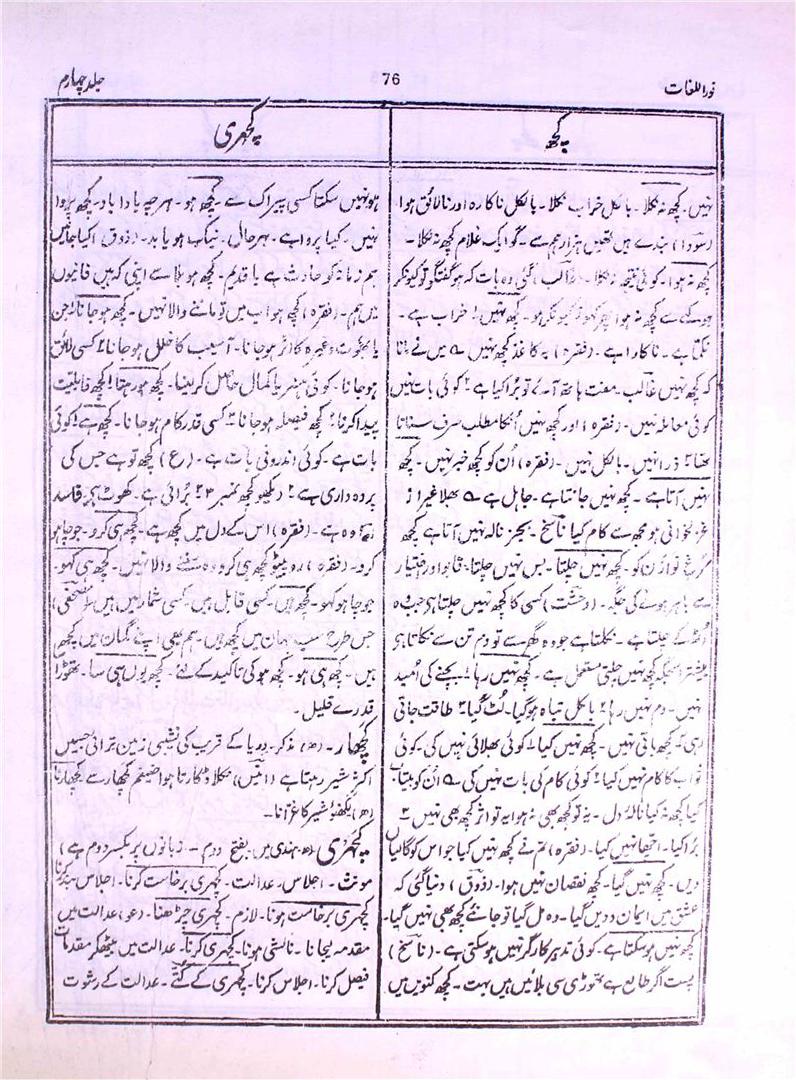 نور اللغات
76
جلد چہارم
کچھ
کچہری
نہیں۔ کچھ نہ نکلا۔ بالکل خراب نکلا۔ بالکل ناکارہ اور نالائق ہوا۔
(سودا) بندے ہیں تمھیں ہزار ہم سے۔ گو ایک غلام کچھ نہ نکلا۔
کچھ نہ ہوا۔ کوئی نتیجہ نہ نکلا۔ (غالب) گئی وہ بات کہ ہو گفتگو تو کیونکر
ہو۔ کہے سے کچھ نہ ہوا پھر کہو تو کیونکر ہو۔ کچھ نہیں۔ خراب ہے۔
نکما ہے۔ ناکارا ہے۔ (فقرہ) یہ کاغذ کچھ نہیں ؎ میں نے مانا
کہ کچھ نہیں غالب۔ مفت ہاتھ آئے تو برا کیا ہے ۲ کوئی بات نہیں
کوئی معاملہ نہیں۔ (فقرہ) اور کچھ نہیں اُنکا مطلب صرف ستانا
تھا ۳ ذرا نہیں۔ بالکل نہیں۔ (فقرہ) اُن کو کچھ خبر نہیں۔ کچھ
نہیں آتا ہے۔ کچھ نہیں جانتا ہے۔ جاہل ہے ؎ بھلا غیر از
غزلخوانی ہو مجھ سے کام کیا ناسخ۔ بجز نالہ نہیں آتا ہے کچھ
مرغ نوازن کو۔ کچھ نہیں چلتا۔ بس نہیں چلتا۔ قابو اور اختیار
سے باہر ہونے کی جگہ۔ (وحشت) کسی کا کچھ نہیں چلتا ہی جب وہ
اُٹھ کے چلتا ہے۔ نکلتا ہے جو وہ گھر سے تو دم تن سے نکلتا ہی
بیشتر اسجگہ کچھ نہیں چلتی مستعمل ہے۔ کچھ نہیں رہا ۱ بچنے کی اُمید
نہیں۔ دم نہیں رہا ۲ بالکل تباہ ہو گیا۔ لُٹ گیا ۳ طاقت جاتی
رہی۔ کچھ باقی نہیں۔ کچھ نہیں کیا ۱ کوئی بھلائی نہیں کی۔ کوئی
ثواب کا کام نہیں کیا ۲ کوئی کام کی بات نہیں کی ؎ اُن کو بیتاب
کیا کچھ نہ کیا نالۂ دل۔ یہ تو کچھ بھی نہ ہوا یہ تو اثر کچھ بھی نہیں ۳
برا کیا۔ اچھا نہیں کیا۔ (فقرہ) تم نے کچھ نہیں کیا جو اس کو گالیاں
دیں۔ کچھ نہیں گیا۔ کچھ نقصان نہیں ہوا۔ (ذوق) دنیا گئی کہ
عشق میں ایمان و دیں گیا۔ وہ مل گیا تو جانئے کچھ بھی نہیں گیا۔
کچھ نہیں ہو سکتا ہے۔ کوئی تدبیر کارگر نہیں ہو سکتی ہے۔ (ناسخ)
پست اگر طالع ہے تھوڑی سی بلائیں ہیں بہت۔ کچھ کنویں میں
ہو نہیں سکتا کسی پیراک سے۔ کچھ ہو۔ ہرچہ باداباد۔ کچھ پروا
نہیں۔ کیا پروا ہے۔ بہرحال۔ نیک ہو یا بد۔ (ذوق) کیا جانیں
ہم زمانہ کو حادث ہے یا قدیم۔ کچھ ہو بلا سے اپنی کہ ہیں فانیوں
میں ہم۔ (فقرہ) کچھ ہو اب میں تو ماننے والا نہیں۔ کچھ ہو جانا ۱ جن
یا بھوت وغیرہ کا اثر ہو جانا۔ آسیب کا خلل ہو جانا ۲ کسی لائق
ہو جانا۔ کوئی ہنر یا کمال حاصل کر لینا۔ کچھ ہو رہنا ۱ کچھ قابلیت
پیدا کرنا ۲ کچھ فیصلہ ہو جانا ۳ کسی قدر کام ہو جانا۔ کچھ ہے ۱ کوئی
بات ہے۔ کوئی اندرونی بات ہے۔ (ع) کچھ تو ہے جس کی
پردہ داری ہے ۲ دیکھو کچھ نمبر ۲۔ ۳ برائی ہے۔ کھوٹ ہے۔ فاسد
مادہ ہے۔ (فقرہ) اس کے دل میں کچھ ہے۔ کچھ ہی کرو۔ جو چاہو
کرو۔ (فقرہ) رو پیٹو کچھ ہی کرو وہ سننے والا نہیں۔ کچھ ہی کہو۔
جو چاہو کہو۔ کچھ ہیں۔ کسی قابل ہیں۔ کسی شمار میں ہیں (مصحفی)
جس طرح سب جہان میں کچھ ہیں۔ ہم بھی اپنے گمان میں کچھ
ہیں۔ کچھ ہی ہو۔ کچھ ہو کی تاکید کے لئے۔ کچھ یوں ہی سا۔ تھوڑا
قدرے قلیل۔
کچھار۔ (ھ) مذکر۔ دریا کے قریب کی نشیبی زمین ترائی جسمیں
اکثر شیر رہتا ہے (انیس) نکلا ڈکارتا ہوا ضیغم کچھار سے۔ کچھارنا
(ھ) لکھنؤ۔ شیر کا غرّانا۔
کچہری (ھ۔ ہندی میں بفتح دوم۔ زبانوں پر بکسر دوم ہے)
مونث۔ اجلاس۔ عدالت۔ کچہری برخاست کرنا۔ اجلاس بند کرنا
کچہری برخاست ہونا۔ لازم۔ کچہری چڑھنا۔ (عو) عدالت میں
مقدمہ لیجانا۔ نالشی ہونا۔ کچہری کرنا۔ عدالت میں بیٹھکر مقدمات
فیصل کرنا۔ اجلاس کرنا۔ کچہری کے کتّے۔ عدالت کے رشوت